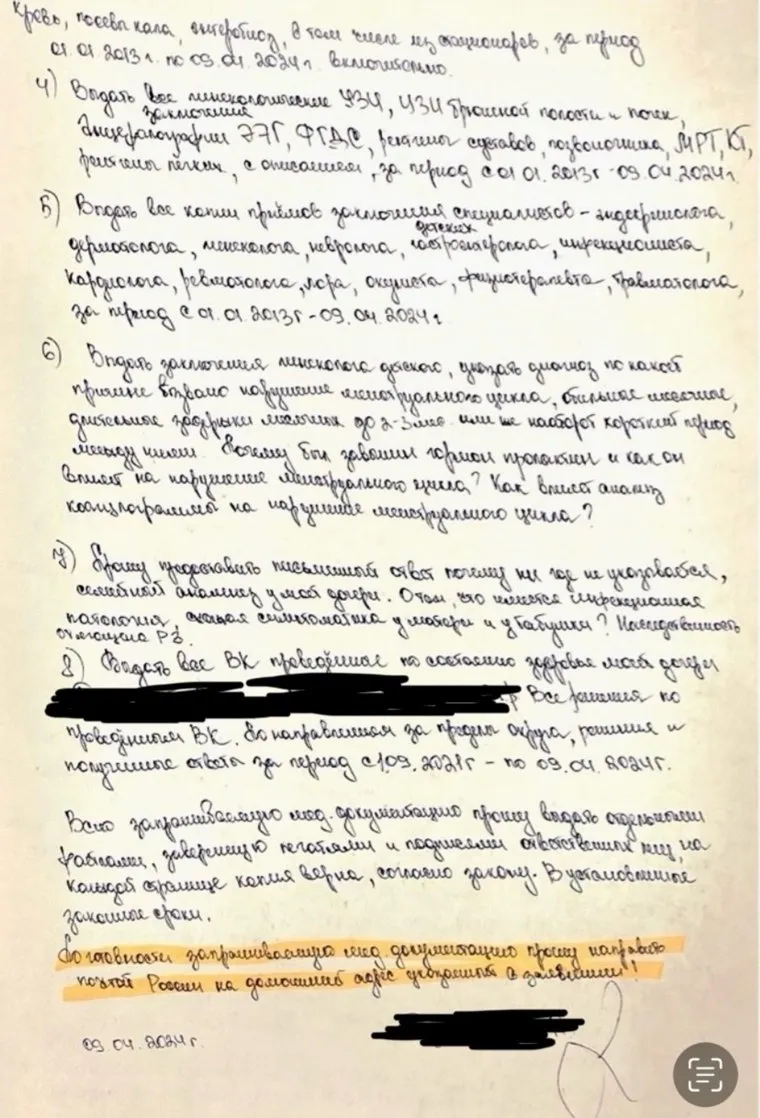 кровь, посевы кала, энтеробиоз, в том числе из стационаров, за период
01.01.2013г. по 09.04.2024г. включительно.
4) Выдать все гинекологические УЗИ, УЗИ брюшной полости и почек,
заключение
Энцефалографии ЭЭГ, ФГДС, рентгены суставов, позвоночника, МРТ, КТ,
рентгены лёгких, с описанием, за период с 01.01.2013г - 09.04.2024г.
5) Выдать все копии приёмов заключения специалистов - эндокринолога,
детских
дерматолога, гинеколога, невролога, гастроэнтеролога, инфекциониста,
кардиолога, ревматолога, лора, окулиста, физиотерапевта, травматолога,
за период с 01.01.2013г - 09.04.2024г.
6) Выдать заключения гинеколога детского, указать диагноз по какой
причине вызвано нарушение менструального цикла, обильное месячное,
длительные задержки месячных до 2-3 мес. или же наоборот короткий период
между ними. Почему был завышен гормон пролактин и как он
влияет на нарушение менструального цикла? Как влияет анализ
коагулограммы на нарушение менструального цикла?
7) Прошу предоставить письменный ответ почему ни где не указывается,
семейный анамнез у моей дочери. О том, что имеется инфекционная
патология, схожая симптоматика у матери и у бабушки? Наследственность
8) Выдать все ВК проведённые по состоянию здоровья моей дочери
Все решения по
проведённым ВК. По направлениям за пределы округа, решения и
полученные ответы за период с 1.09.2021г - по 09.04.2024г.
Всю запрашиваемую мед. документацию прошу выдать отдельными
файлами, заверенную печатями и подписями ответственных лиц, на
каждой странице копия верна, согласно закону. В установленные
законные сроки.
По готовности запрашиваемую мед. документацию прошу направить
почтой России на домашний адрес указанный в заявлении!
09.04.2024г.